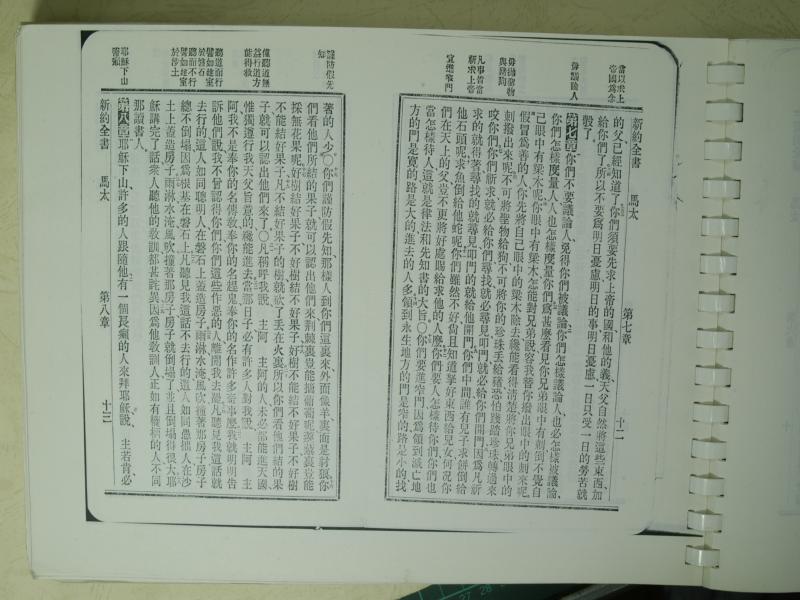 當以求上
帝國為念
毋議論人
毋拋聖物
與豬狗
凡事皆當
祈求上帝
宜進窄門
新約全書 馬太 第七章 十二
的父已經知道了你們須要先求上帝的國和他的義天父自然將這些東西加
給你們了所以不要爲明日憂慮明日的事明日憂慮一日只受一日的勞苦就
彀了
第七章你們不要議論人免得你們被議論你們怎樣議論人也必怎樣被議論
你們怎樣度量人人也怎樣度量你們爲甚麽看見你兄弟眼中有刺倒不覺自
己眼中有梁木呢你眼中有梁木怎能對兄弟說容我替你撥出眼中的刺來呢
假冒爲善的人你先將自己眼中的梁木除去纔能看得清楚將你兄弟眼中的
刺撥出來呢不可將聖物給狗不可將你的珍珠丢給猪恐怕踐踏珍珠轉過來
咬你們你們祈求就必給你們尋找就必尋見叩門就必給你們開門因爲凡祈
求的就得著尋找的就尋見叩門的就給他開門你們中間誰有兒子求餅倒給
他石頭呢求魚倒給他蛇呢你們雖然不好尚且知道拿好東西給兒女何况你
們在天上的父豈不更將好處賜給求他的人麽你們要人怎樣待你們你們也
當怎樣待人這就是律法和先知書的大旨○你們要進窄門因爲領到滅亡地
方的門是寬的路是大的進去的人多領到永生地方的門是窄的路是小的找
謹防假先
知
僅聽道無
益行道方
能得救
聽道而行
譬如建室
於磐石
聽而不行
譬如建室
於沙土
耶穌下山
著的人少○你們謹防假先知那樣人到你們這裏來外面像羊裏面是豺狼你
們看他們所結的果子就可以認出他們來荆棘裏豈能摘葡萄呢蒺藜裏豈能
採無花果呢好樹結好果子不好樹結不好果子好樹不能結不好果子不好樹
不能結好果子凡不結好果子的樹就砍了丢在火裏所以你們看他們結的果
子就可以認出他們來了○凡稱呼我說主阿主阿的人未必都能進天國
惟獨遵行我天父旨意的纔能進去當那日子必有許多人對我說主阿主
阿我不是奉你的名傳敎奉你的名趕鬼奉你的名作許多奇事麽我就明明告
訴他們說我不曾認得你們你們這些作惡的人離開我去罷凡聽見我這話就
去行的這人如同聰明人在磐石上蓋造房子雨淋水淹風吹撞著那房子房子
總不倒塌因爲根基在磐石上凡聽見我這話不去行的這人如同愚拙人在沙
土上蓋造房子雨淋水淹風吹撞著那房子房子就倒塌了並且倒塌得很大耶
穌講完了話衆人聽他的敎訓都甚詫異因爲他敎訓人正如有權柄的人不同
那讀書人
第八章耶穌下山許多的人跟隨他有一個長癩的人來拜耶穌說主若肯必
新約全書 馬太 第八章 十三